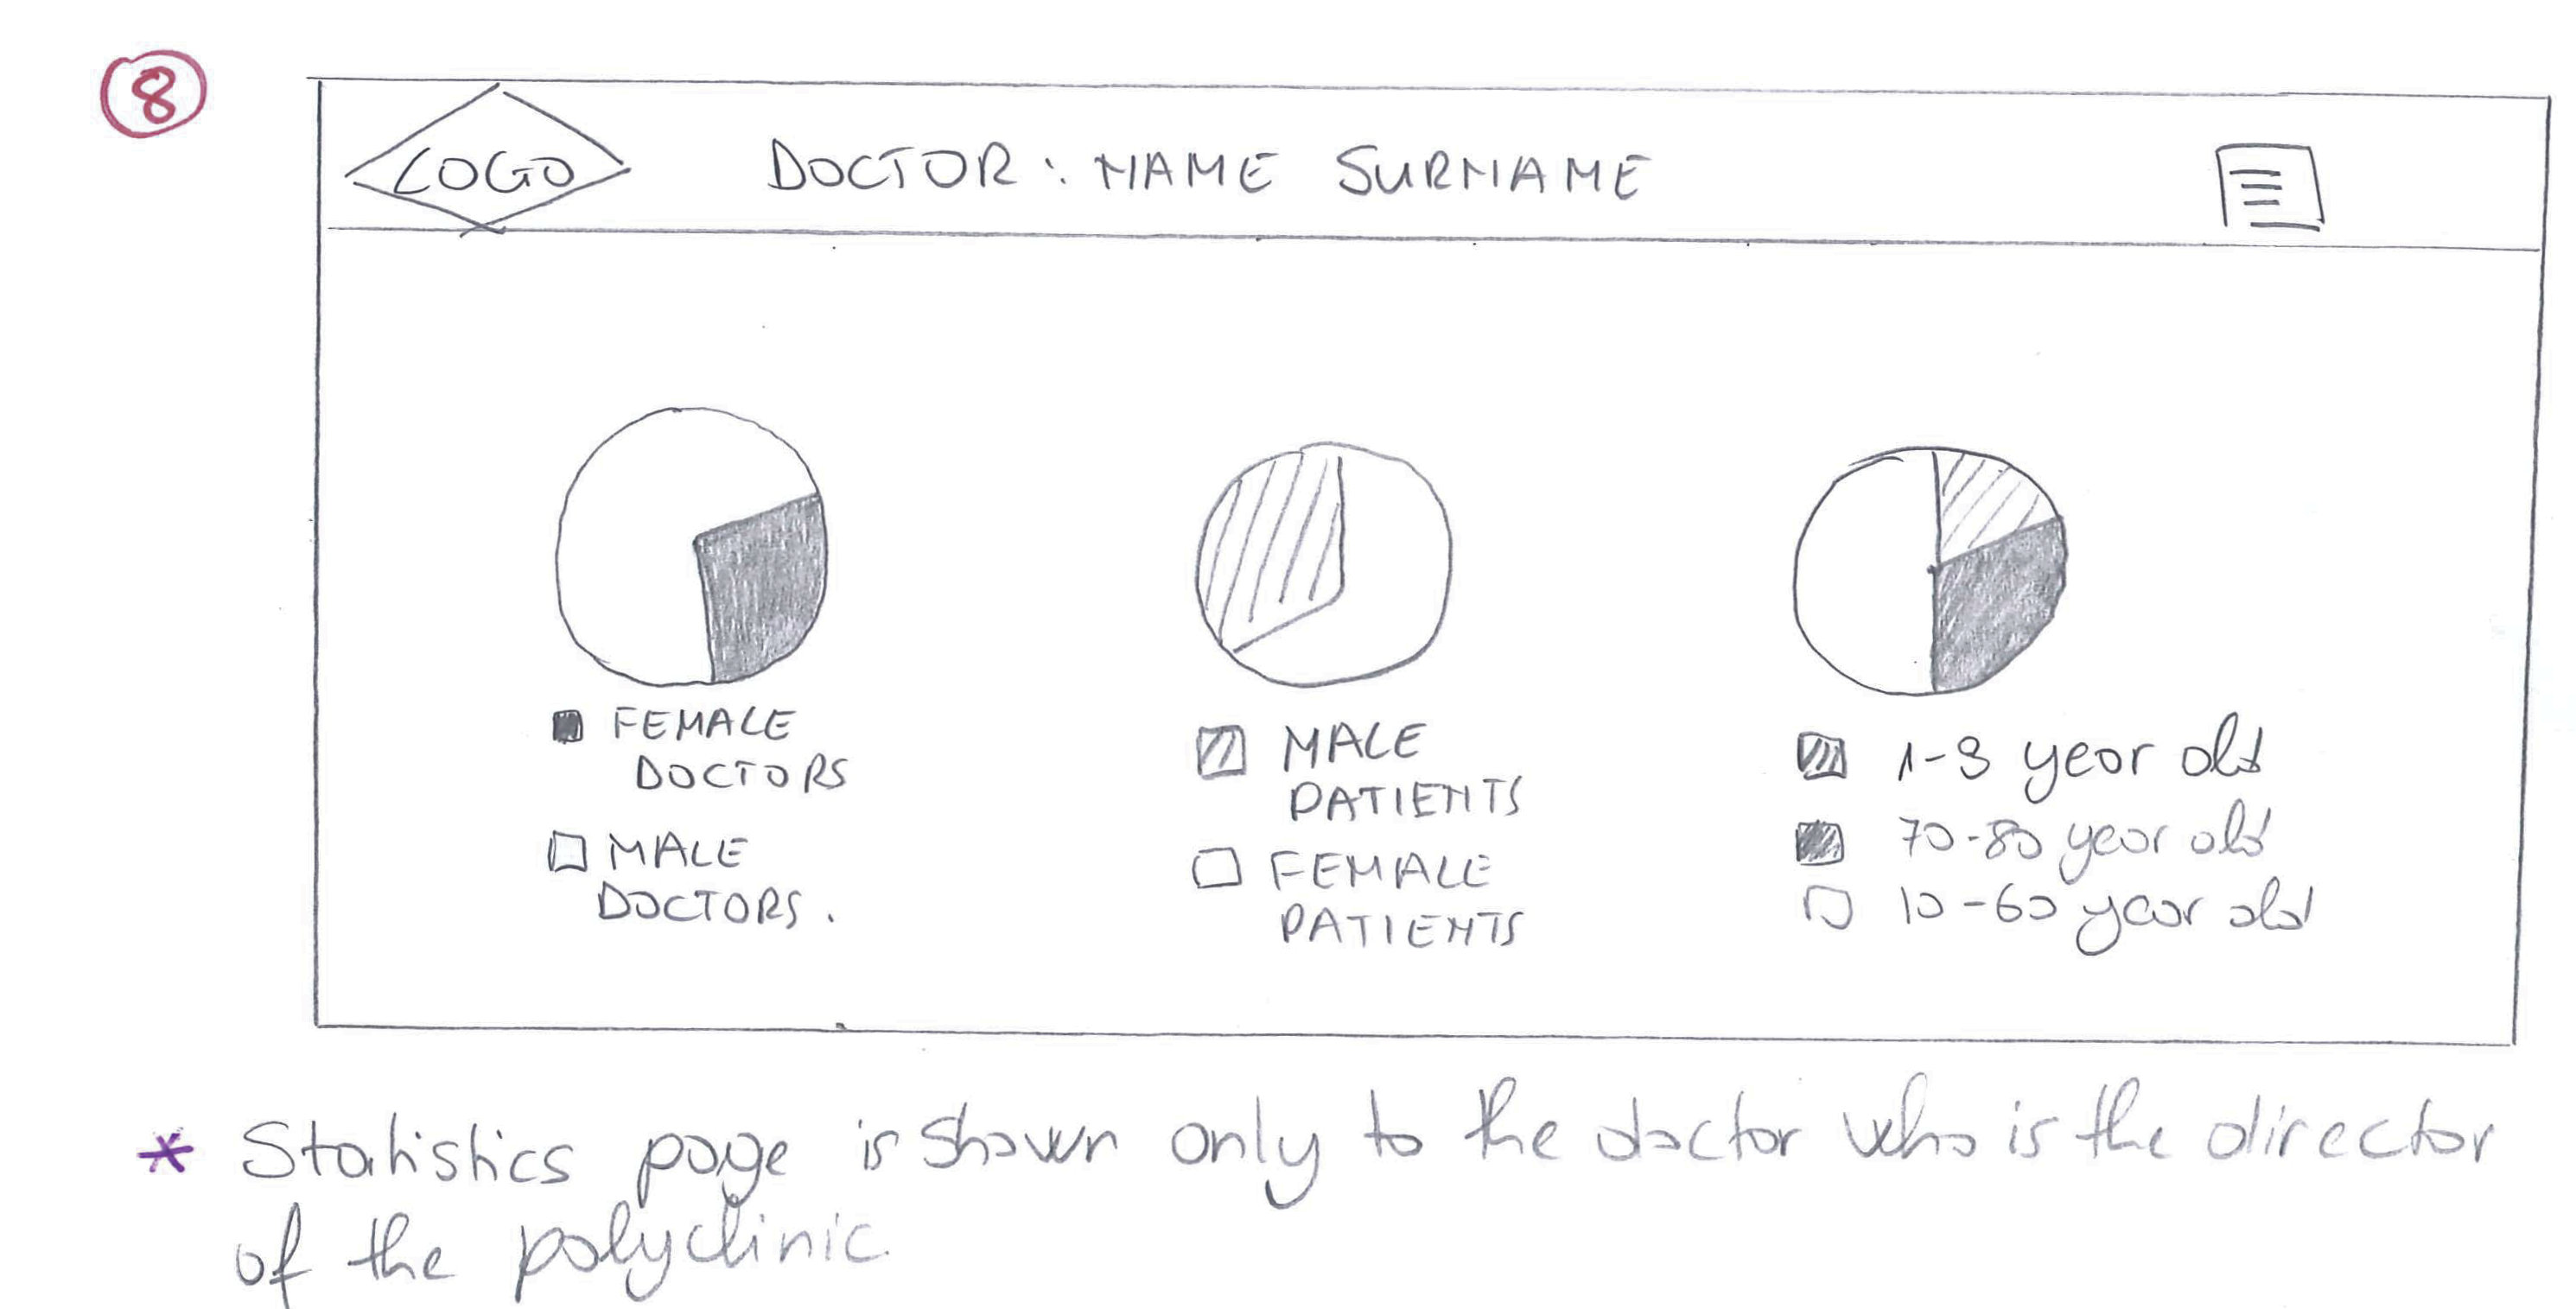 8
LOGO DOCTOR: NAME SURNAME
FEMALE
DOCTORS
MALE
DOCTORS.
MALE
PATIENTS
FEMALE
PATIENTS
1-9 year old
70-80 year old
10-60 year old
* Statistics page is shown only to the doctor who is the director
of the polyclinic